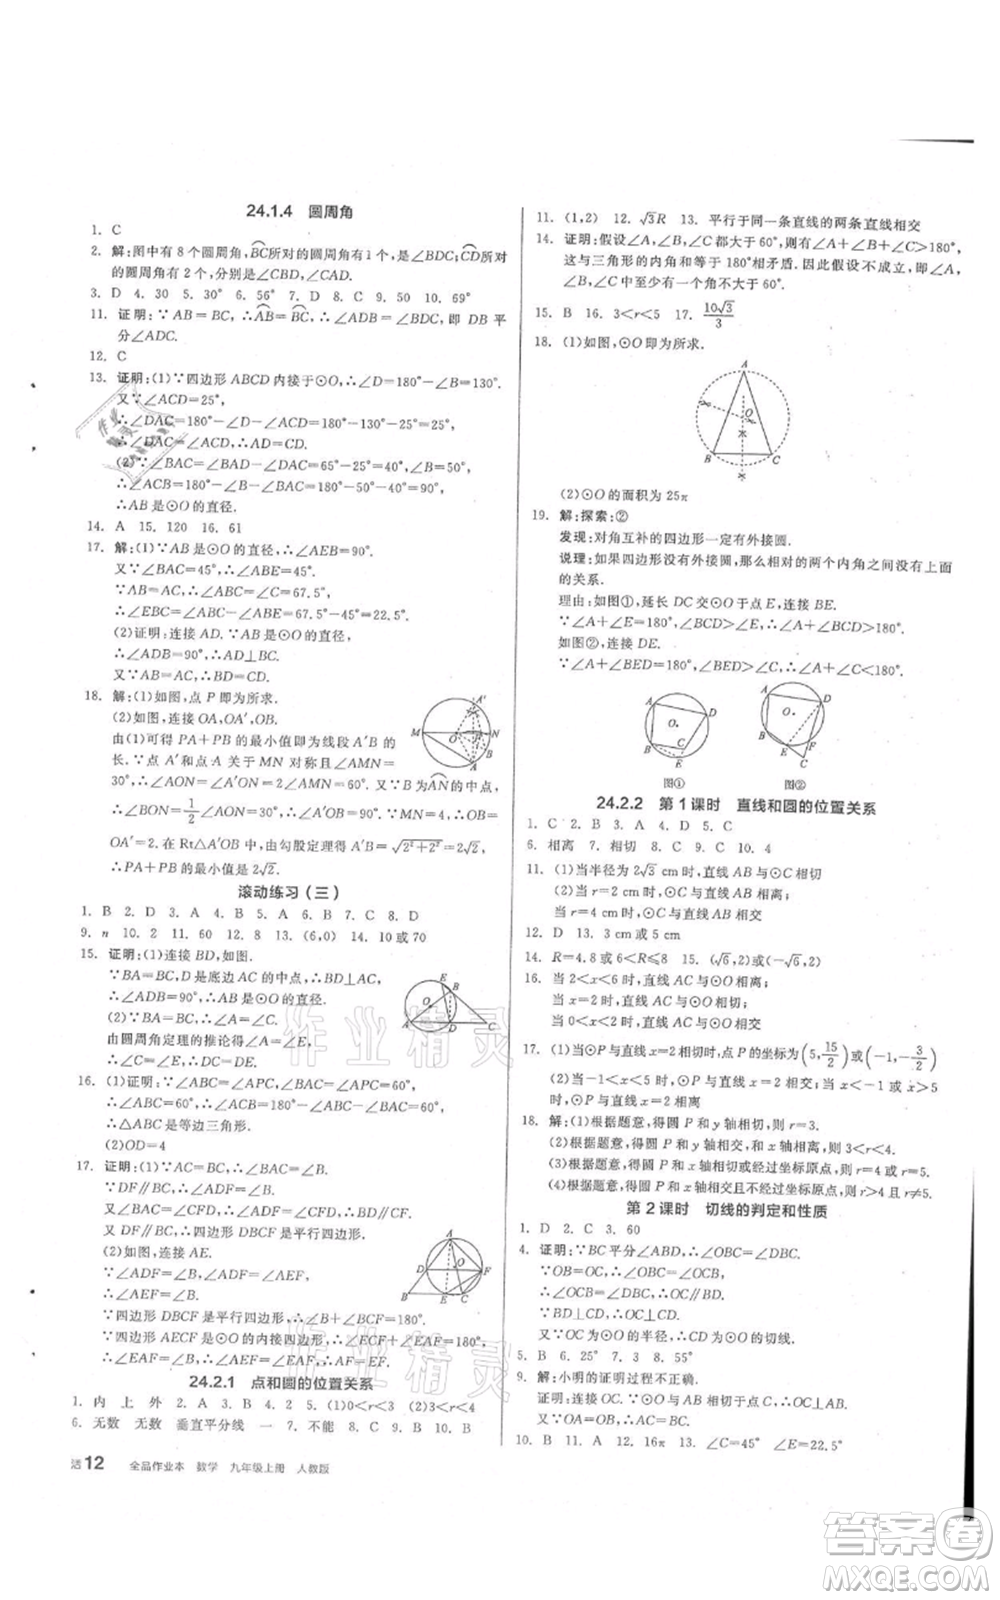 24.1.4 圆周角
1. C
2. 解:图中有 8 个圆周角,BC所对的圆周角有 1 个,是∠BDC,CD所对
的圆周角有 2 个,分别是∠CBD,∠CAD.
3. D 4. 30 5. 30° 6. 56° 7. D 8. C 9. 50 10. 69°
11. 证明:∵AB=BC,∴AB=BC,∴∠ADB=∠BDC,即 DB 平
分∠ADC.
12. C
13. 证明:(1)∵四边形 ABCD 内接于⊙O,∴∠D=180°-∠B=130°.
又∵∠ACD=25°,
∴∠DAC=180°-∠D-∠ACD=180°-130°-25°=25°,
∴∠DAC=∠ACD,∴AD=CD.
(2)∵∠BAC=∠BAD-∠DAC=65°-25°=40°,∠B=50°,
∴∠ACB=180°-∠B-∠BAC=180°-50°-40°=90°,
∴AB是⊙O的直径.
14. A 15. 120 16. 61
17. 解:(1)∵AB是⊙O的直径,∴∠AEB=90°.
又∵∠BAC=45°,∴∠ABE=45°.
∵AB=AC,∴∠ABC=∠C=67.5°,
∴∠EBC=∠ABC-∠ABE=67.5°-45°=22.5°.
(2)证明:连接 AD.∵AB是⊙O的直径,
∴∠ADB=90°,∴AD⊥BC.
又∵AB=AC,∴BD=CD.
18. 解:(1)如图,点 P 即为所求.
(2)如图,连接 OA,OA′,OB.
由(1)可得 PA+PB 的最小值即为线段 A′B 的
长.∵点 A′和点 A 关于 MN 对称,∠AMN=
30°,∴∠AON=∠A′ON=2∠AMN=60°.又∵B为AN的中点,
∴∠BON=1/2∠AON=30°,∴∠A′OB=90°.又∵MN=4,∴OB=
OA′=2.在 Rt△A′OB 中,由勾股定理可得 A′B=√(2²+2²)=2√2,
∴PA+PB 的最小值是 2√2.
滚动练习(三)
1. B 2. D 3. A 4. B 5. A 6. B 7. A 8. D
9. n 10. 2 11. 60 12. 8 13. (6,0) 14. 10 或 70
15. 证明:(1)连接 BD,如图.
∵BA=BC,D是底边 AC 的中点,∴BD⊥AC,
∴∠ADB=90°,∴AB是⊙O的直径.
(2)∵BA=BC,∴∠A=∠C.
由圆周角定理的推论得∠A=∠E,
∴∠C=∠E,∴DE=DC.
16. (1)证明:∵∠ABC=∠APC,∠BAC=∠BPC,
∠APC=∠CPB=60°,∴∠ABC=∠BAC=60°,
∴△ABC是等边三角形.
(2)OD=4
17. 证明:(1)∵AC=BC,∴∠BAC=∠B.
∵DF∥BC,∴∠ADF=∠B.
又∵∠BAC=∠CFD,∴∠ADF=∠CFD,∴BD∥CF.
又∵DF∥BC,∴四边形 DBCF 是平行四边形.
(2)如图,连接 AE.
∵∠ADF=∠B,∠ADF=∠AEF,
∴∠AEF=∠B.
∵四边形 DBCF 是平行四边形,∴∠B=∠CFD.
∵四边形 AECF 是⊙O的内接四边形,∴∠ECF+∠EAF=180°,
∴∠EAF=∠B,∴∠AEF=∠EAF,∴AF=EF.
24.2.1 点和圆的位置关系
1. 内 上 外 2. A 3. B 4. 2 5. (1)0<r<4 (2)3<r<4
6. 无数 无数 垂直平分线 一 7. 不能 8. C 9. D 10. B
活 12 全品作业本 数学 九年级上册 人教版
11. (1,2) 12. √3R 13. 平行于同一条直线的两条直线相交
14. 证明:假设∠A,∠B,∠C 都大于 60°,则有∠A+∠B+∠C>180°,
这与三角形的内角和等于 180°相矛盾.因此假设不成立,即∠A,
∠B,∠C中至少有一个角不大于 60°.
15. B 16. 3<r<5 17. 10√3/3
18. (1)如图,⊙O即为所求.
(2)⊙O的面积为25π
19. 解:探索:②
发现:对角互补的四边形一定有外接圆.
说理:如果四边形没有外接圆,那么相对的两个内角没有上面
的关系.
理由:如图①,延长 DC 交⊙O于点 E,连接 BE.
∵∠A+∠E=180°,∠BCD>∠E,∴∠A+∠BCD>180°.
如图②,连接 DE.
∵∠A+∠BED=180°,∠BED>∠C,∴∠A+∠C<180°.
图① 图②
24.2.2 第 1 课时 直线和圆的位置关系
1. C 2. B 3. D 4. D 5. C
6. 相离 7. 相切 8. C 9. C 10. 4
11. (1)当半径为 2√3 cm 时,直线 AB 与⊙C相切
(2)当 r=2 cm 时,⊙C与直线 AB 相离;
当 r=4 cm 时,⊙C与直线 AB 相交
12. D 13. 3 cm 或 5 cm
14. R=4.8 或 6<R≤8 15. (√6,2)或(-√6,2)
16. 当 2<r<4 时,直线 a 与⊙O相离;
当 r=2 时,直线 a 与⊙O相切;
当 0<r<2 时,直线 a 与⊙O相交
17. (1)当⊙P与直线 x=2 相切时,点 P 的坐标为(5,15/2)或(-1,-3/2)
(2)当-1<x<5 时,⊙P与直线 x=2 相交;当 x<-1 或 x>5
时,⊙P与直线 x=2 相离
18. 解:(1)根据题意,得圆 P 和 y 轴相切,则有 r=3.
(2)根据题意,得圆 P 和 y 轴相交,和 x 轴相离,所以 3<r<4.
(3)根据题意,得圆 P 和 x 轴相切或经过坐标原点,则 r=4 或 r=5.
(4)根据题意,得圆 P 和 x 轴相交且不经过坐标原点,则 r>4 且 r≠5.
第 2 课时 切线的判定和性质
1. D 2. C 3. 60
4. 证明:∵BC平分∠ABD,∴∠OBC=∠DBC.
∵OB=OC,∴∠OBC=∠OCB,
∴∠OCB=∠DBC,∴OC∥BD.
∵BD⊥CD,∴OC⊥CD.
又∵OC为⊙O的半径,∴CD为⊙O的切线.
5. B 6. 25° 7. D 8. C
9. 解:小明的证明过程不正确.
证明:连接 OC.∵OA=OB,CA=CB,
∴OC⊥AB.又∵直线 AB 经过⊙O上的点 C,
∴直线 AB 是⊙O的切线.
10. B 11. A 12. 16π 13. (1)略 (2)∠E=22.5°
作业精灵
作业精灵
答案卷
MXQE.COM